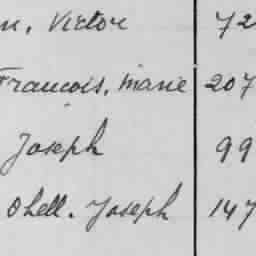 n, Victor 72
Francois, Marie 207
Joseph 99
Ohell. Joseph 147